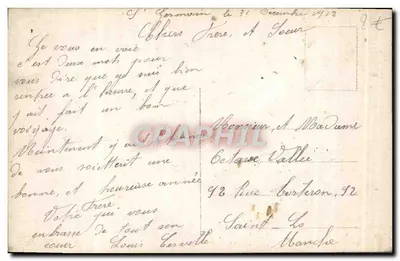 St Germain le 31 Décembre 1912
Chers Frère, et Soeur
Je vous en voie
c'est deux mots pour
vous dire que je suis bien
rentrée a l'heure, et que
j'ait fait un bon
voyage.
Maintenent
de vous soiettent une
bonne, et heureuse année
Frère.
Votre qui vous
enbrasse de tout son
coeur Louis
Monsieur, et Madame
Octave Vallée
92 Rue Torteron, 92
Saint-Lo
Manche
2€
CPAPHIL